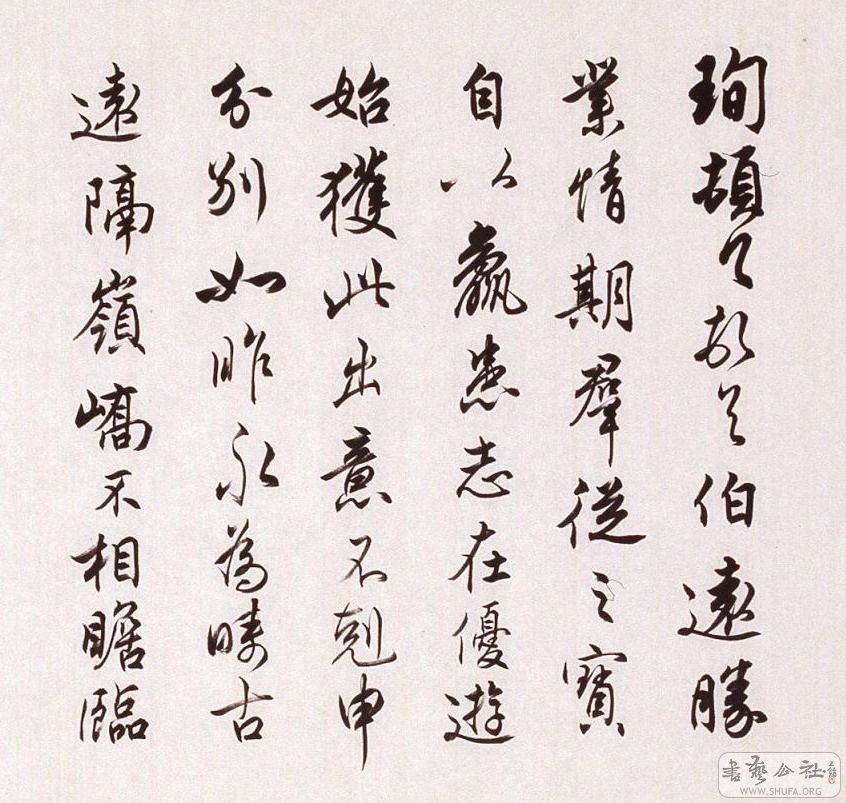 珣頓首頓首伯遠勝
業情期羣從之寶
自以羸患志在優遊
始獲此出意不剋申
分別如昨永為疇古
遠隔嶺嶠不相瞻臨
書藝公社
WWW.SHUFA.ORG